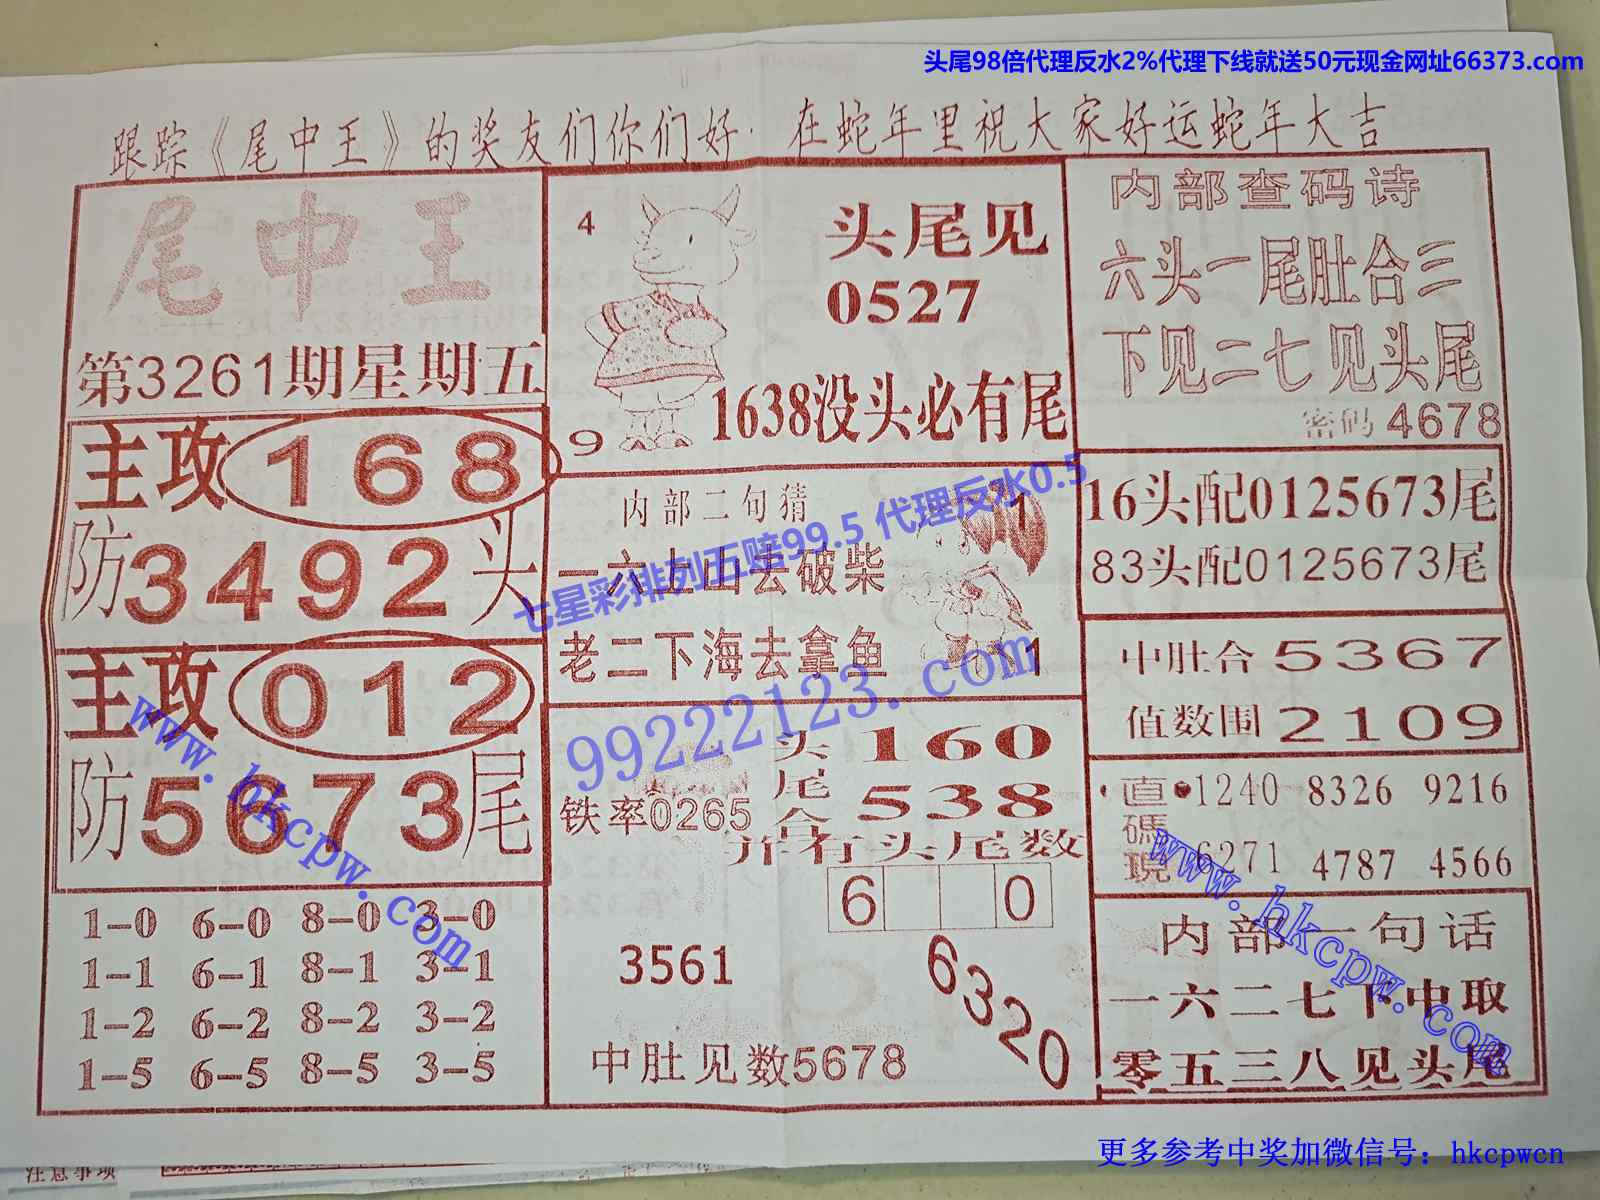 头尾98倍代理反水2%代理下线就送50元现金网址66373.com
跟踪《尾中王》的奖友们你们好·在蛇年里祝大家好运蛇年大吉
尾中王
第3261期星期五
主攻168
防3492头
主攻012
防5673尾
1-0 6-0 8-0 3-0
1-1 6-1 8-1 3-1
1-2 6-2 8-2 3-2
1-5 6-5 8-5 3-5
4
头尾见
0527
1638没头必有尾
9
内部二句猜
1
一六上山去破柴
老二下海去拿鱼
1
七星彩排列五赔99.5 代理反水0.5
99222123.com
头160
尾
合538
铁率0265
并有头尾数
6 0
3561
6320
中肚见数5678
内部查码诗
六头一尾肚合三
下见二七见头尾
密码4678
16头配0125673尾
83头配0125673尾
中肚合5367
值数围2109
直碼現
1240 8326 9216
6271 4787 4566
内部一句话
一六二七下中取
零五三八见头尾
www.hkcpw.com
www.hkcpw.com
注意事项
更多参考中奖加微信号：hkcpwcn